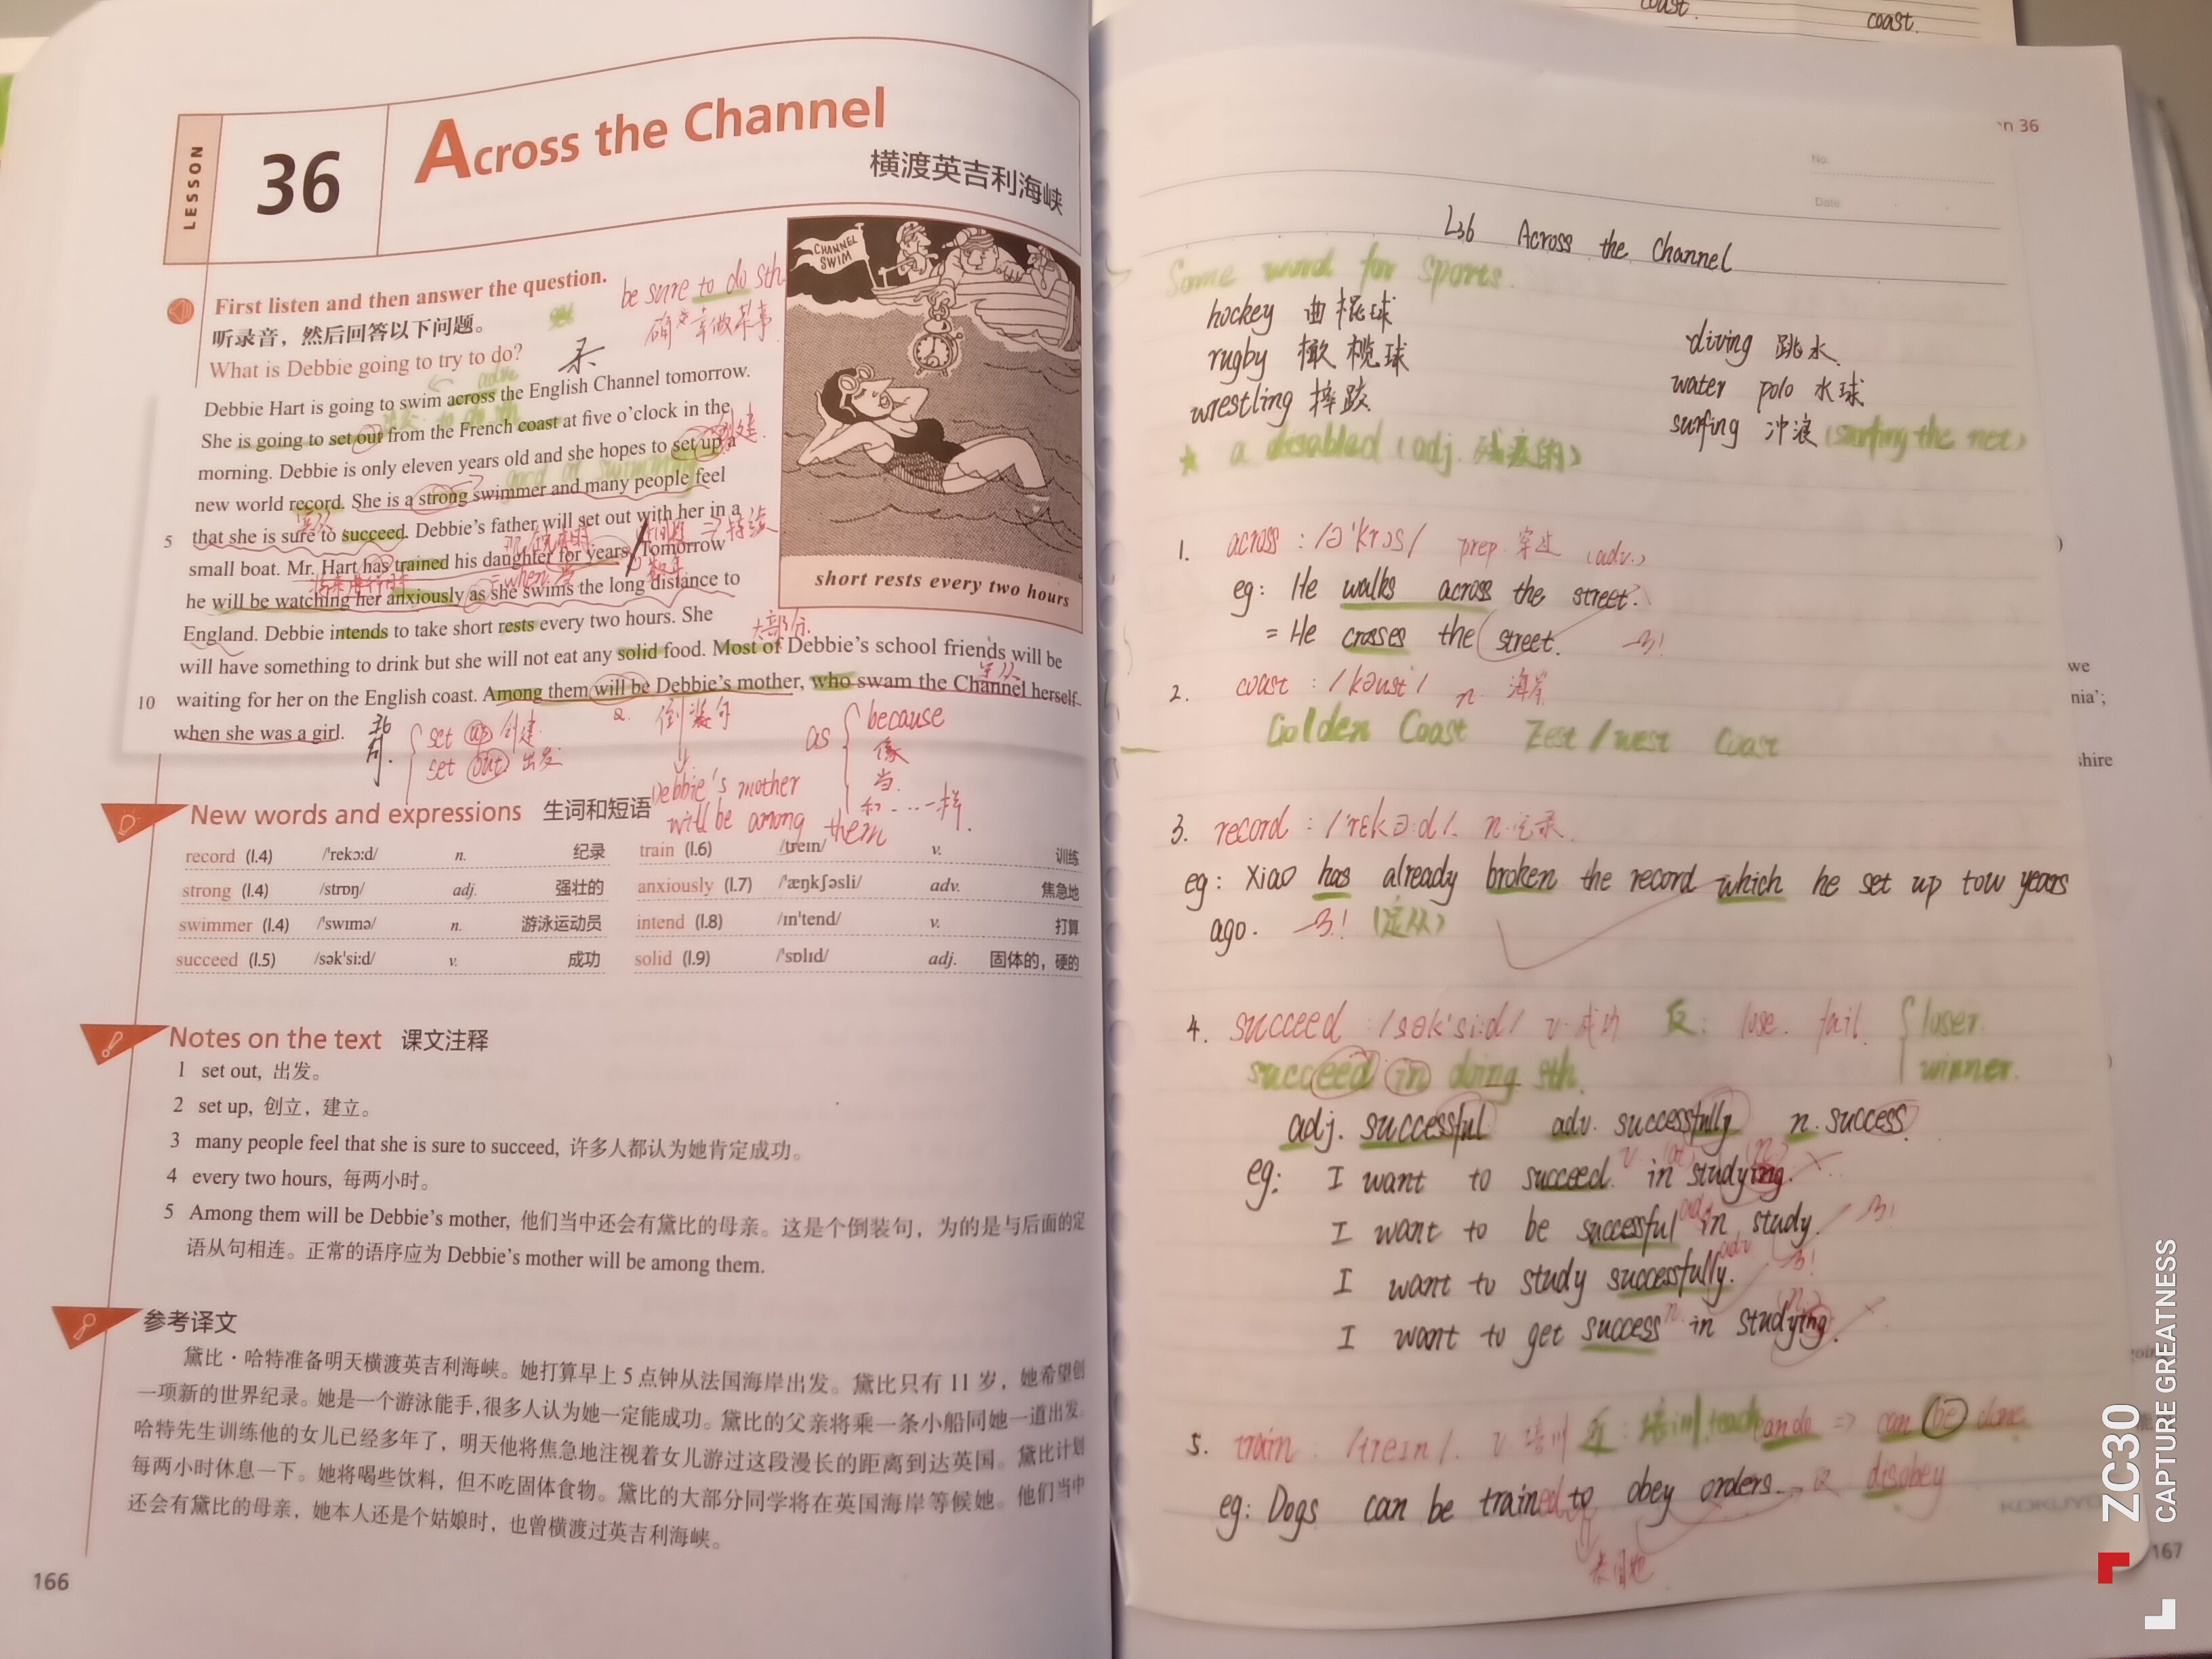 coast.
coast.
LESSON
36
Across the Channel
横渡英吉利海峡
First listen and then answer the question.
听录音，然后回答以下问题。
What is Debbie going to try to do?
be sure to do sth
CHANNEL SWIM
Debbie Hart is going to swim across the English Channel tomorrow.
She is going to set out from the French coast at five o'clock in the
morning. Debbie is only eleven years old and she hopes to set up a
new world record. She is a strong swimmer and many people feel
5 that she is sure to succeed. Debbie's father will set out with her in a
small boat. Mr. Hart has trained his daughter for years. Tomorrow
he will be watching her anxiously as she swims the long distance to
England. Debbie intends to take short rests every two hours. She
will have something to drink but she will not eat any solid food. Most of Debbie's school friends will be
10 waiting for her on the English coast. Among them will be Debbie's mother, who swam the Channel herself
when she was a girl.
short rests every two hours
good at swimming
=when 当
大部分
定从
倒装句
Debbie's mother
will be among them
set up 创建
set out 出发
as
because
像
当
和……一样.
New words and expressions 生词和短语
record (l.4) /'rekɔ:d/ n. 纪录
strong (l.4) /strɒŋ/ adj. 强壮的
swimmer (l.4) /'swɪmə/ n. 游泳运动员
succeed (l.5) /sək'si:d/ v. 成功
train (l.6) /treɪn/ v. 训练
anxiously (l.7) /'æŋkʃəsli/ adv. 焦急地
intend (l.8) /ɪn'tend/ v. 打算
solid (l.9) /'sɒlɪd/ adj. 固体的，硬的
Notes on the text 课文注释
1 set out, 出发。
2 set up, 创立，建立。
3 many people feel that she is sure to succeed, 许多人都认为她肯定成功。
4 every two hours, 每两小时。
5 Among them will be Debbie's mother, 他们当中还会有黛比的母亲。这是个倒装句，为的是与后面的定
语从句相连。正常的语序应为 Debbie's mother will be among them.
参考译文
黛比·哈特准备明天横渡英吉利海峡。她打算早上 5 点钟从法国海岸出发。黛比只有 11 岁，她希望创
一项新的世界纪录。她是一个游泳能手，很多人认为她一定能成功。黛比的父亲将乘一条小船同她一道出发。
哈特先生训练他的女儿已经多年了，明天他将焦急地注视着女儿游过这段漫长的距离到达英国。黛比计划
每两小时休息一下。她将喝些饮料，但不吃固体食物。黛比的大部分同学将在英国海岸等候她。他们当中
还会有黛比的母亲，她本人还是个姑娘时，也曾横渡过英吉利海峡。
166
n 36
No.
Date
L36 Across the Channel
Some word for sports.
hockey 曲棍球
rugby 橄榄球
wrestling 摔跤
diving 跳水
water polo 水球
surfing 冲浪 (surfing the net)
★ a disabled (adj. 残疾的)
1. across : /ə'krɔs/ prep. 穿过 (adv.)
eg: He walks across the street.
= He crosses the street.
2. coast : /kəust/ n. 海岸
Golden Coast Zest/west Coast
3. record : /'rekɔ:d/ n. 记录.
eg: Xiao has already broken the record which he set up tow years
ago. (定从)
4. succeed : /sək'si:d/ v. 成功 反: lose. fail. loser.
winner.
succeed in doing sth.
adj. successful adv. successfully n. success.
eg: I want to succeed in studying.
I want to be successful in study.
I want to study successfully.
I want to get success in studying.
5. train : /treɪn/. v. 培训 近: 培训 teach can do => can be done
eg: Dogs can be trained to obey orders. disobey
表目的
we
nia';
shire
KOKUYO
167
ZC30
CAPTURE GREATNESS